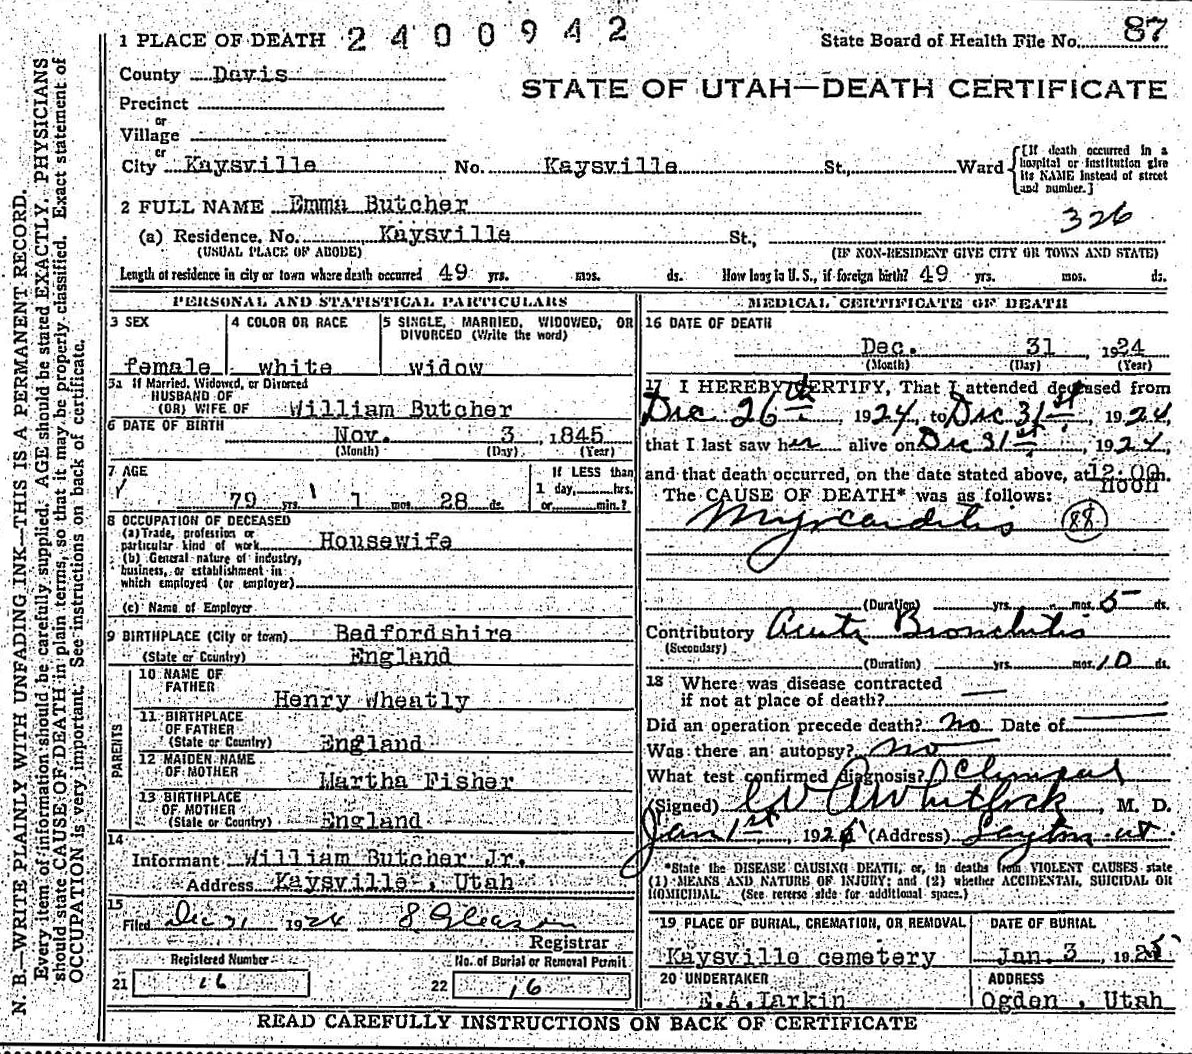 1 PLACE OF DEATH 2400942
State Board of Health File No. 87
County Davis
STATE OF UTAH—DEATH CERTIFICATE
Precinct
or
Village
or
City Kaysville No. Kaysville St., Ward
[If death occurred in a
hospital or institution give
its NAME instead of street
and number.]
2 FULL NAME Emma Butcher
326
(a) Residence. No. Kaysville St.,
(USUAL PLACE OF ABODE) (IF NON-RESIDENT GIVE CITY OR TOWN AND STATE)
Length of residence in city or town where death occurred 49 yrs. mos. ds. How long in U. S., if foreign birth? 49 yrs. mos. ds.
PERSONAL AND STATISTICAL PARTICULARS
3 SEX
female
4 COLOR OR RACE
white
5 SINGLE, MARRIED, WIDOWED, OR
DIVORCED (Write the word)
widow
5a If Married, Widowed, or Divorced
HUSBAND OF
(OR) WIFE OF William Butcher
6 DATE OF BIRTH Nov. 3, 1845
(Month) (Day) (Year)
7 AGE
79 yrs. 1 mos. 28 ds.
If LESS than
1 day, hrs.
or min.?
8 OCCUPATION OF DECEASED
(a) Trade, profession or
particular kind of work Housewife
(b) General nature of industry,
business, or establishment in
which employed (or employer)
(c) Name of Employer
9 BIRTHPLACE (City or town) Bedfordshire
(State or Country) England
PARENTS
10 NAME OF
FATHER Henry Wheatly
11 BIRTHPLACE
OF FATHER
(State or Country) England
12 MAIDEN NAME
OF MOTHER Martha Fisher
13 BIRTHPLACE
OF MOTHER
(State or Country) England
14
Informant William Butcher Jr.
Address Kaysville , Utah
15
Filed Dec 31 1924 S Gleason
Registrar
Registered Number
21 16
No. of Burial or Removal Permit
22 16
MEDICAL CERTIFICATE OF DEATH
16 DATE OF DEATH
Dec. 31, 1924
(Month) (Day) (Year)
17 I HEREBY CERTIFY, That I attended deceased from
Dec 26th 1924, to Dec 31st, 1924,
that I last saw her alive on Dec 31st, 1924,
and that death occurred, on the date stated above, at 12:00 m.
noon
The CAUSE OF DEATH* was as follows:
Myocarditis 88
(Duration) yrs. mos. 5 ds.
Contributory Acute Bronchitis
(Secondary)
(Duration) yrs. mos. 10 ds.
18 Where was disease contracted
if not at place of death? —
Did an operation precede death? no Date of —
Was there an autopsy? no
What test confirmed diagnosis? Clinical
(Signed) Whitlock, M. D.
Jan 1st, 192 (Address) Layton ut
*State the DISEASE CAUSING DEATH, or, in deaths from VIOLENT CAUSES, state
(1) MEANS AND NATURE OF INJURY; and (2) whether ACCIDENTAL, SUICIDAL OR
HOMICIDAL. (See reverse side for additional space.)
19 PLACE OF BURIAL, CREMATION, OR REMOVAL
Kaysville cemetery
DATE OF BURIAL
Jan. 3, 1925
20 UNDERTAKER
E.A.Larkin
ADDRESS
Ogden , Utah
READ CAREFULLY INSTRUCTIONS ON BACK OF CERTIFICATE
N. B.—WRITE PLAINLY WITH UNFADING INK—THIS IS A PERMANENT RECORD.
Every item of information should be carefully supplied. AGE should be stated EXACTLY. PHYSICIANS
should state CAUSE OF DEATH in plain terms, so that it may be properly classified. Exact statement of
OCCUPATION is very important. See instructions on back of certificate.